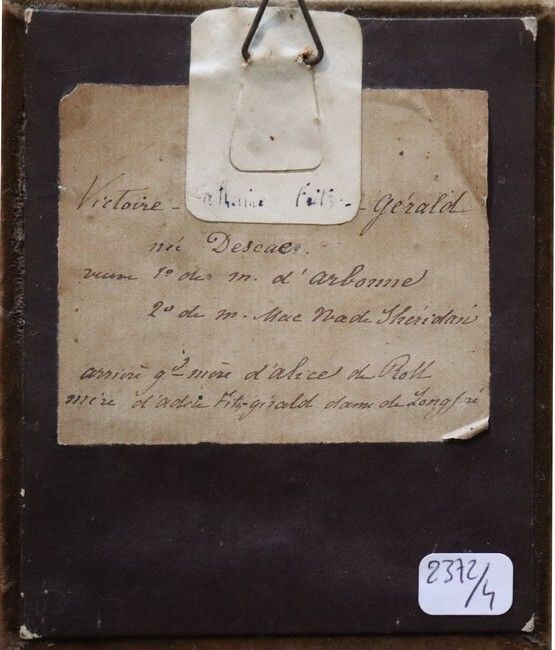 Victoire - Catherine Fritz - Gérald
née Descae.
veuve 1º de m. d'arbonne
2º de m. Mac Wade Shéridan
arrière gd mère d'alice de Roll
mère d'adèle Fitz-gérald dame de Longpré
2372/4